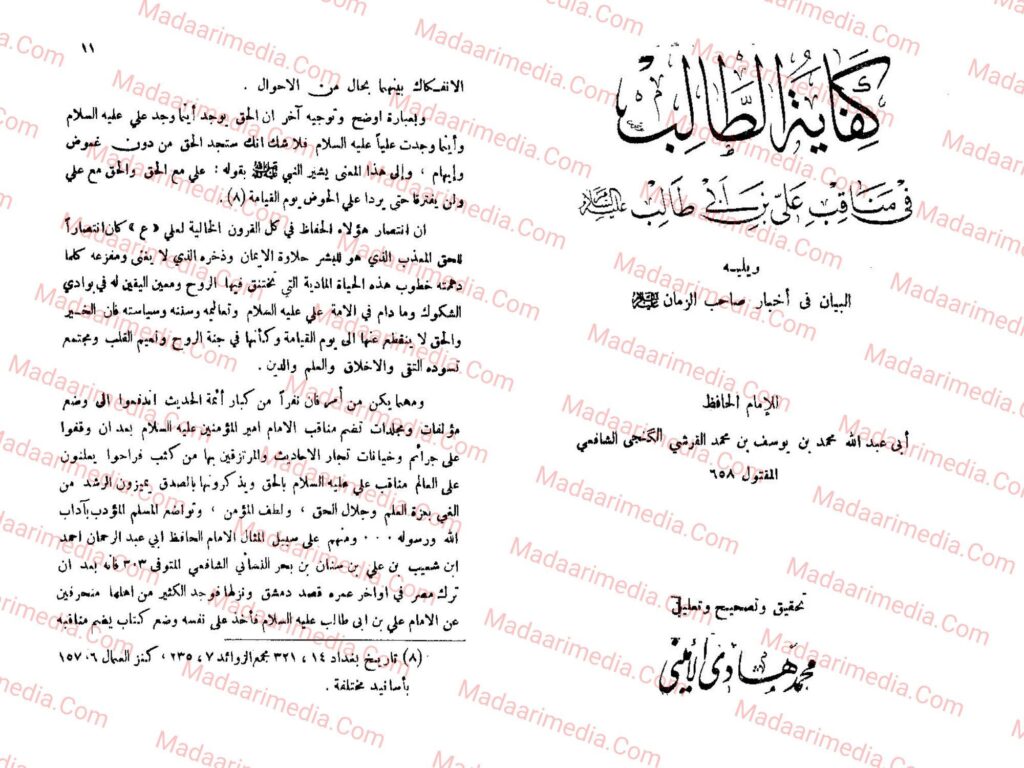 كفاية الطالب
في مناقب علي بن أبي طالب عليه السلام
ويليه
البيان في أخبار صاحب الزمان
للإمام الحافظ
أبي عبد الله محمد بن يوسف بن محمد القرشي الگنجي الشافعي
المقتول ٦٥٨
تحقيق وتصحيح وتعليق
محمد هادي الأميني
١١
الانفكاك بينهما بحال من الاحوال .
وبعبارة اوضح وتوجيه آخر ان الحق يوجد أينما وجد علي عليه السلام
وأينما وجدت علياً عليه السلام فلا شك انك ستجد الحق من دون غموض
وإبهام ، وإلى هذا المعنى يشير النبي ﷺ بقوله : علي مع الحق والحق مع علي
ولن يفترقا حتى يردا علي الحوض يوم القيامة (٨) .
ان انتصار هؤلاء الحفاظ في كل القرون الخالية لعلي « ع » كان انتصاراً
للحق المعذب الذي هو للبشر حلاوة الايمان وذخره الذي لا يفنى ومفزعه كلما
دهمته خطوب هذه الحياة المادية التي تختنق فيها الروح ومعين اليقين له في بوادي
الشكوك وما دام في الامة علي عليه السلام وتعاليمه وسننه وسياسته فان الخير
والحق لا ينقطع عنها الى يوم القيامة وكأنها في جنة الروح ونعيم القلب ومجتمع
تسوده التقى والاخلاق والعلم والدين .
ومهما يكن من أمر فان نفراً من كبار أئمة الحديث اندفعوا الى وضع
مؤلفات ومجلدات تضم مناقب الامام امير المؤمنين عليه السلام بعد ان وقفوا
على جرائم وخيانات تجار الاحاديث والمرتزقين بها من كثب فراحوا يعلنون
على العالم مناقب علي عليه السلام بالحق ويذكرونها بالصدق يميزون الرشد من
الغي بعزة العلم وجلال الحق ، ولطف المؤمن ، وتواضع المسلم المؤدب بآداب
الله ورسوله ... ومنهم على سبيل المثال الامام الحافظ ابي عبد الرحمان احمد
ابن شعيب بن علي بن سنان بن بحر النسائي الشافعي المتوفى ٣٠٣ فانه بعد ان
ترك مصر في اواخر عمره قصد دمشق ونزلها فوجد الكثير من اهلها منحرفين
عن الامام علي بن ابى طالب عليه السلام فأخذ على نفسه وضع كتاب يضم مناقبه
(٨) تاريخ بغداد ١٤ ، ٣٢١ مجمع الزوائد ٧ ، ٢٣٥ ، كنز العمال ٦ ، ١٥٧
بأسانيد مختلفة .
Madaarimedia.Com